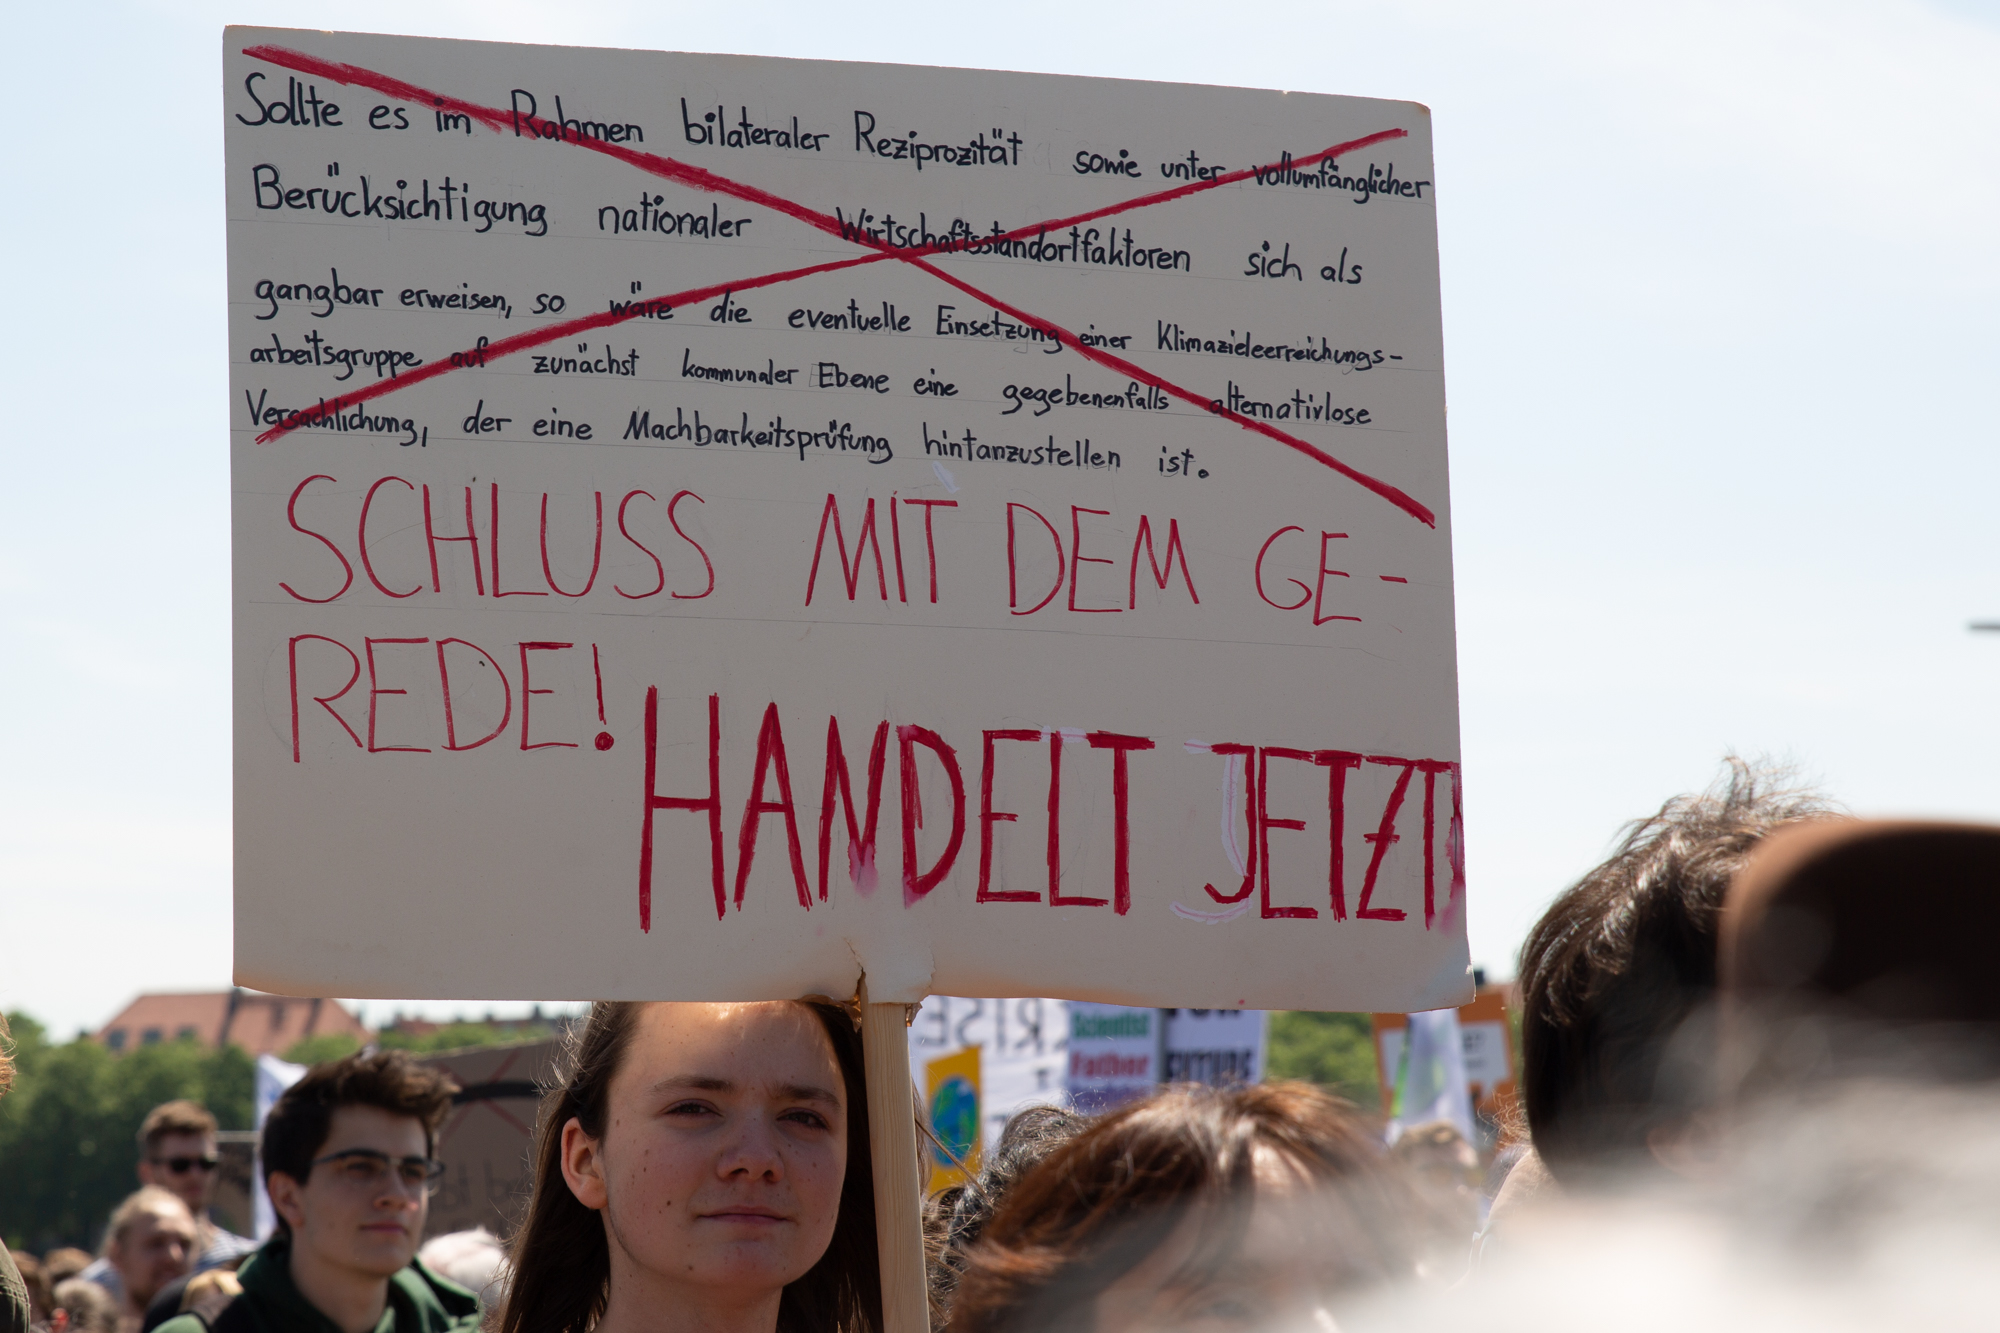 Sollte es im Rahmen bilateraler Reziprozität sowie unter vollumfänglicher
Berücksichtigung nationaler Wirtschaftsstandortfaktoren sich als
gangbar erweisen, so wäre die eventuelle Einsetzung einer Klimazieleerreichungs-
arbeitsgruppe auf zunächst kommunaler Ebene eine gegebenenfalls alternativlose
Versachlichung, der eine Machbarkeitsprüfung hintanzustellen ist.
SCHLUSS MIT DEM GE-
REDE!
HANDELT JETZT
Scientist
Father